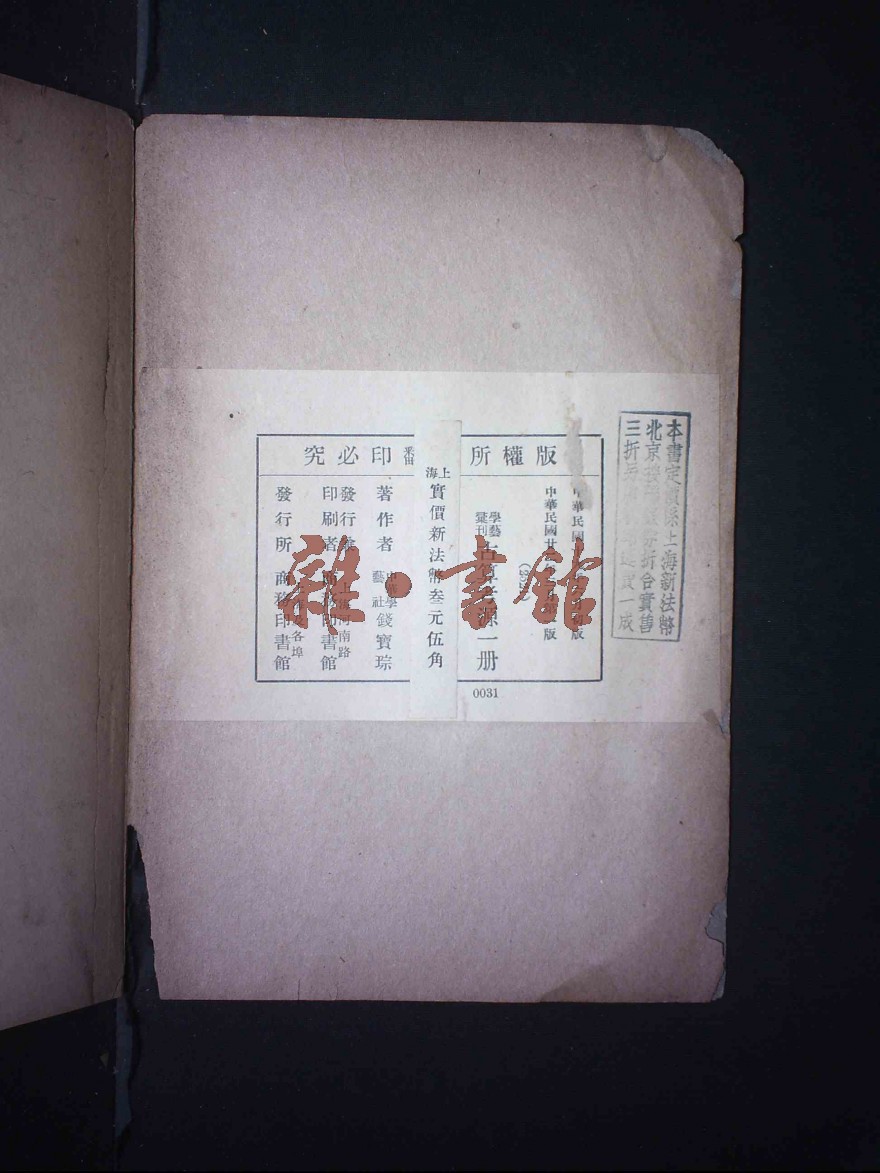 版權所 翻印必究
中華民國
版
中華民國廿
版
學藝
彙刊
古算考源一册
上海
實價新法幣叁元伍角
著作者
中華學
藝社
錢寶琮
發行兼
印刷者
上海河南路
商務印書館
發行所
上海及各埠
商務印書館
0031
本書定價係上海新法幣
北京
折合實售
三折
一成
雜·書館